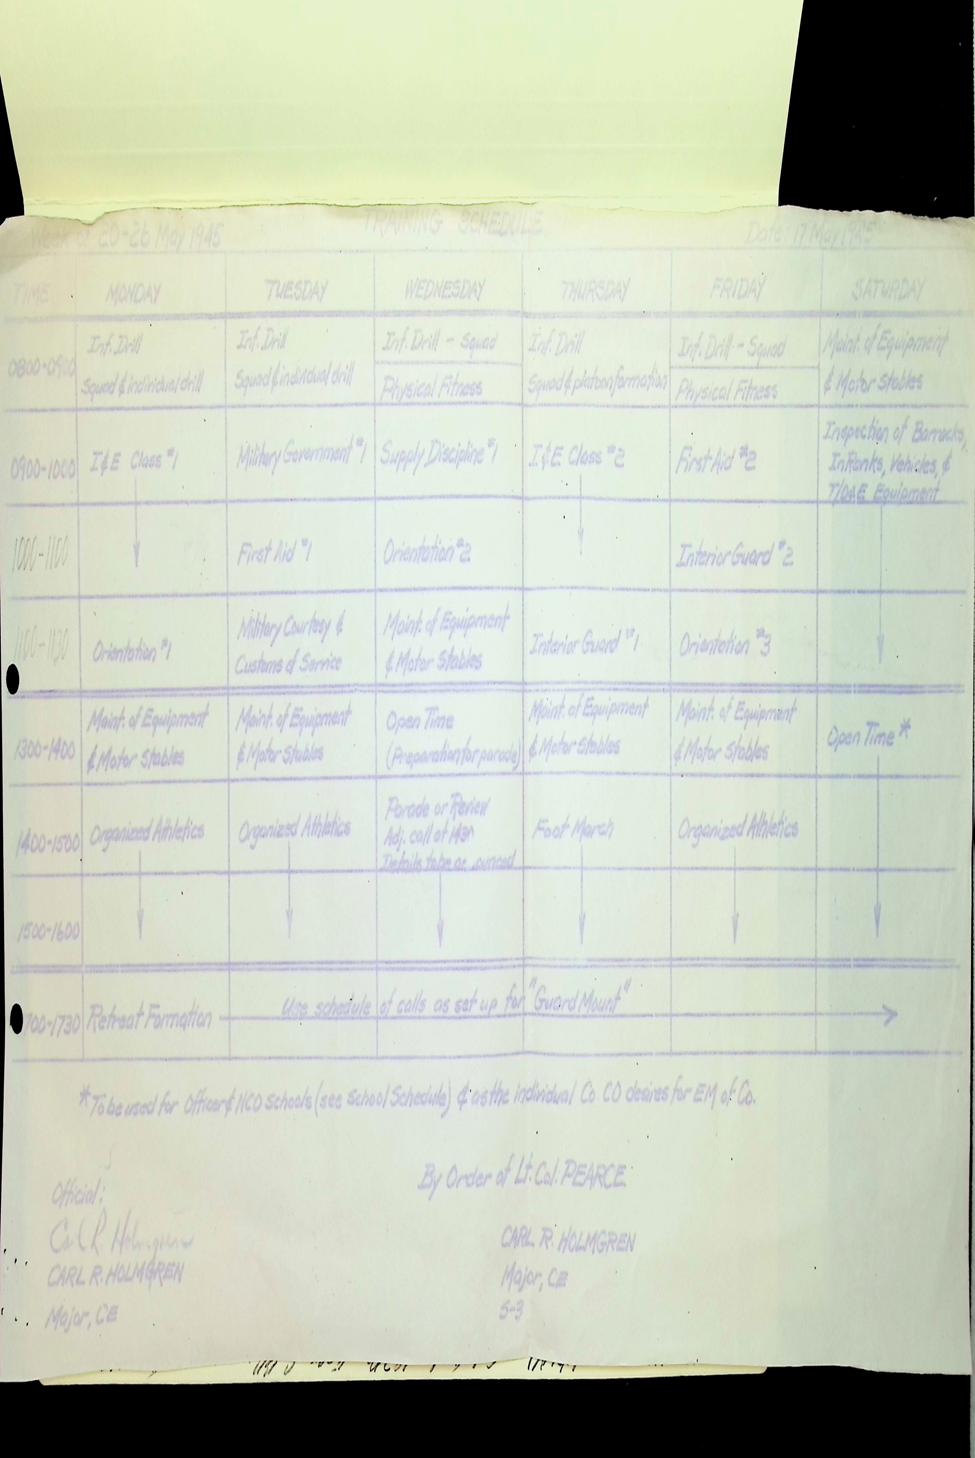 TRAINING SCHEDULE
Week of 20-26 May 1945
Date: 17 May 1945
TIME MONDAY TUESDAY WEDNESDAY THURSDAY FRIDAY SATURDAY
0800-0900
Inf. Drill
Squad & individual drill
Inf. Drill
Squad & individual drill
Inf. Drill - Squad
Physical Fitness
Inf. Drill
Squad & platoon formation
Inf. Drill - Squad
Physical Fitness
Maint. of Equipment
& Motor Stables
0900-1000
I&E Class #1
Military Government #1
Supply Discipline #1
I&E Class #2
First Aid #2
Inspection of Barracks,
In Ranks, Vehicles, &
T/O&E Equipment
1000-1100
First Aid #1
Orientation #2
Interior Guard #2
1100-1130
Orientation #1
Military Courtesy &
Customs of Service
Maint. of Equipment
& Motor Stables
Interior Guard #1
Orientation #3
1300-1400
Maint. of Equipment
& Motor Stables
Maint. of Equipment
& Motor Stables
Open Time
(Preparation for parade)
Maint. of Equipment
& Motor Stables
Maint. of Equipment
& Motor Stables
Open Time *
1400-1500
Organized Athletics
Organized Athletics
Parade or Review
Adj. call at 1430
Details to be
Foot March
Organized Athletics
1500-1600
00-1730
Retreat Formation
Use schedule of calls as set up for "Guard Mount"
* To be used for Officer & NCO schools (see School Schedule) & as the individual Co CO desires for EM of Co.
By Order of Lt. Col. PEARCE
Official:
Carl R Holmgren
CARL R. HOLMGREN
Major, CE
CARL R. HOLMGREN
Major, CE
S-3